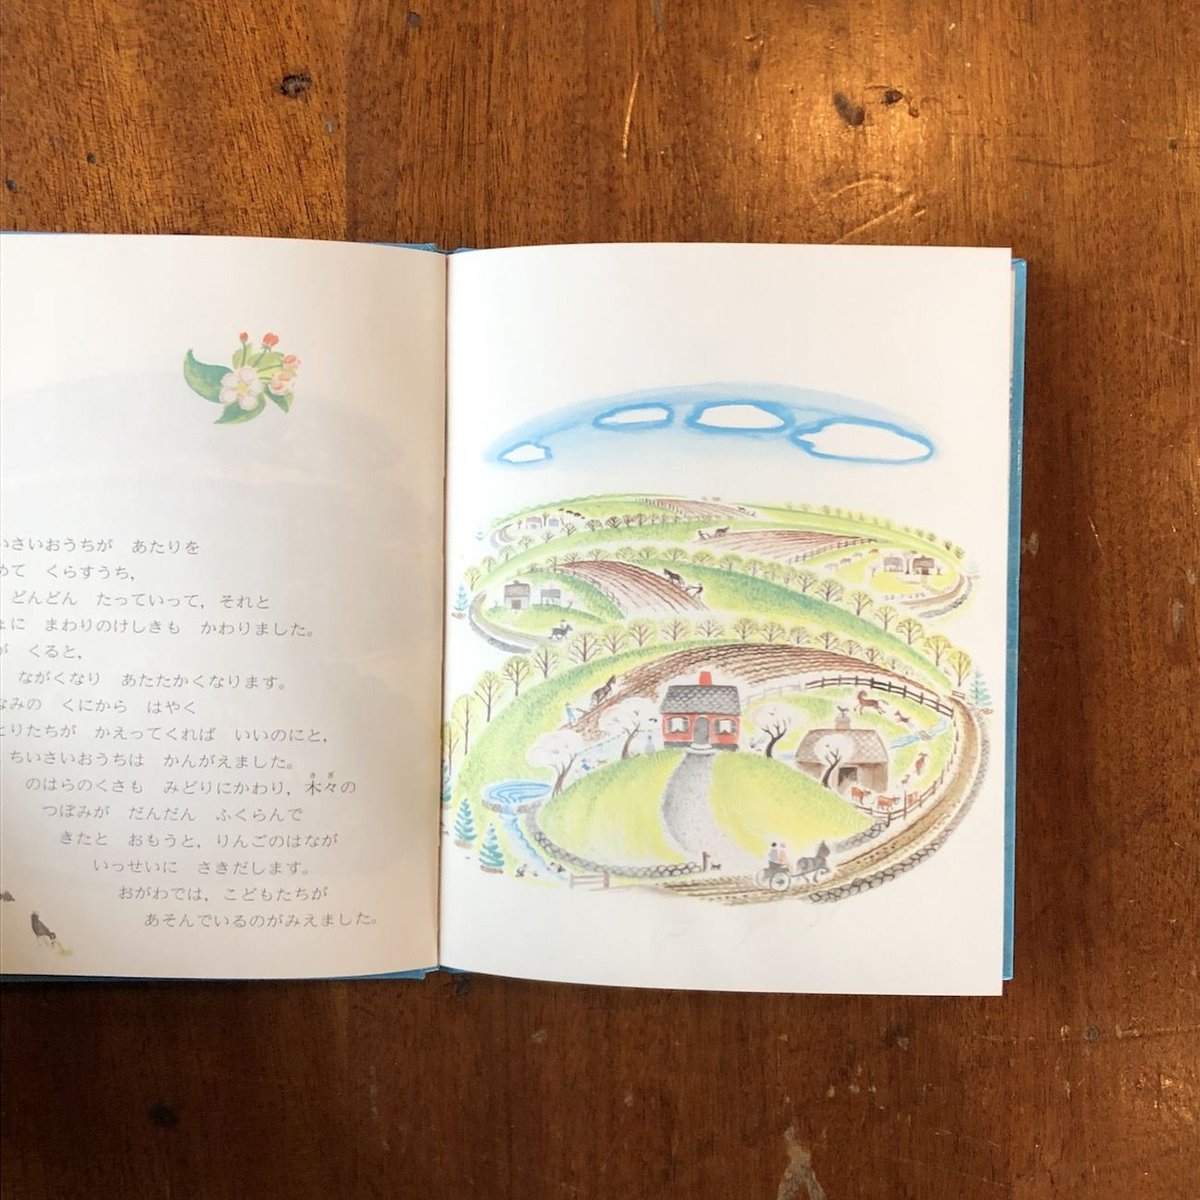 いさいおうちが　あたりを
めて　くらすうち，
どんどん　たっていって，それと
ょに　まわりのけしきも　かわりました。
が　くると，
ながくなり　あたたかくなります。
なみの　くにから　はやく
とりたちが　かえってくれば　いいのにと，
ちいさいおうちは　かんがえました。
のはらのくさも　みどりにかわり，木々の
つぼみが　だんだん　ふくらんで
きたと　おもうと，りんごのはなが
いっせいに　さきだします。
おがわでは，こどもたちが
あそんでいるのがみえました。